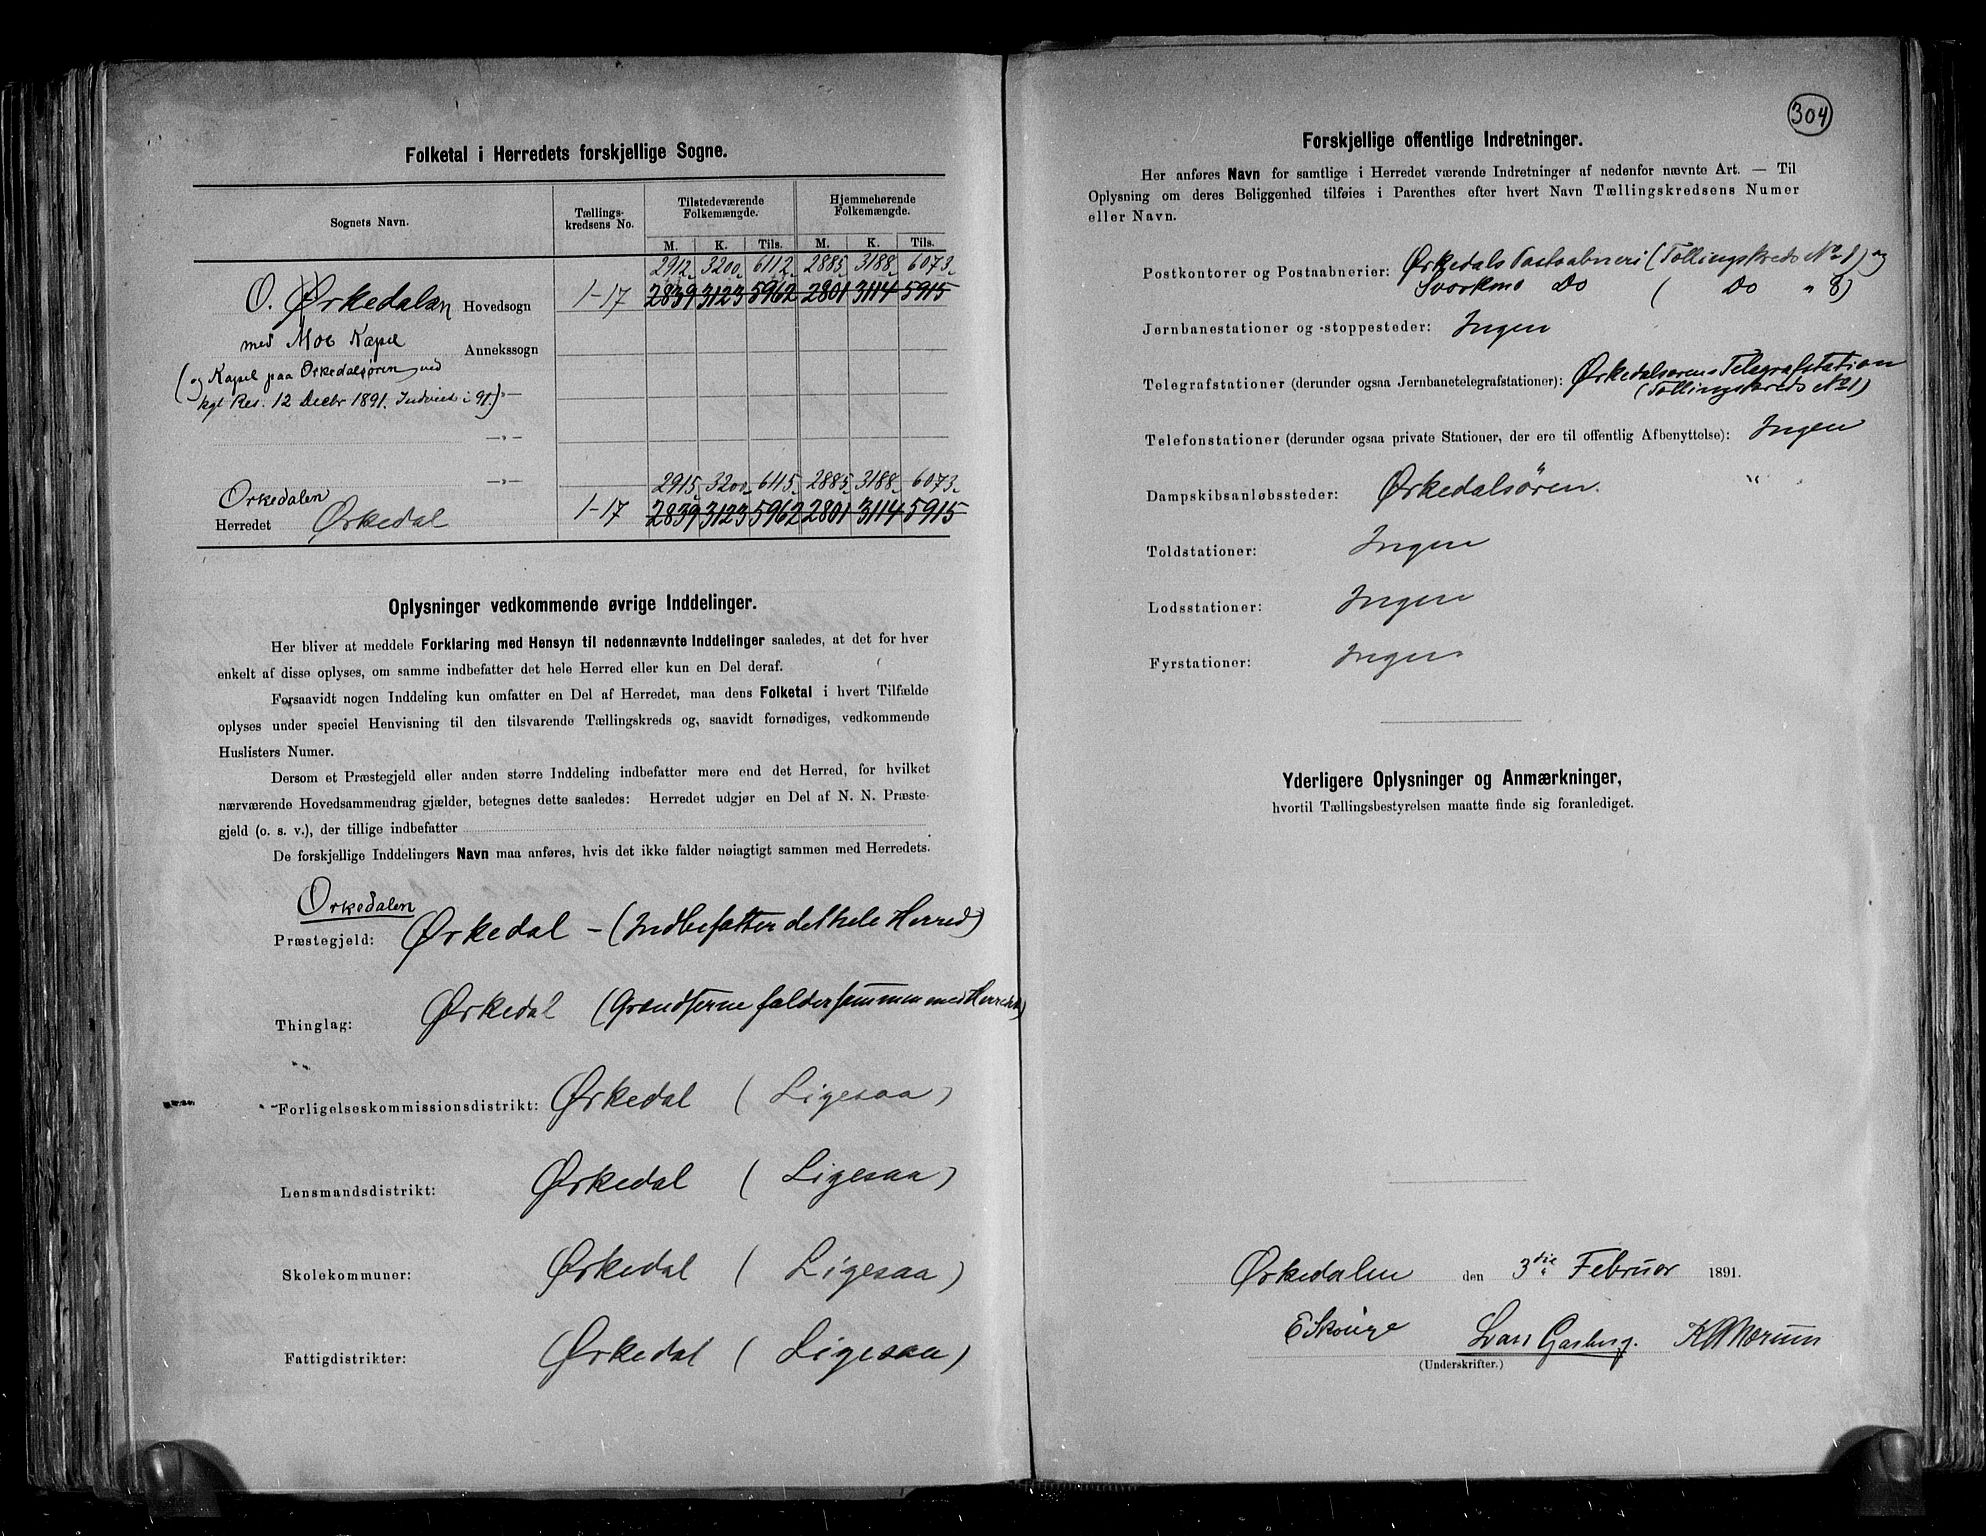 Folketal i Herredets forskjellige Sogne.
Sognets Navn.
Tællings-
kredsens No.
Tilstedeværende
Folkemængde.
Hjemmehørende
Folkemængde.
M. K. Tils. M. K. Tils.
2912 3200 6112 2885 3188 6073
O. Ørkedalen Hovedsogn 1-17 2839 3123 5962 2801 3114 5915
med Moe Kapel Annekssogn
(og Kapel paa Orkedalsøren ved
kgl Res. 12 Decbr 1891. Indviet i 91) -"-
-"-
-"-
2915 3200 6115 2885 3188 6073
Orkedalen
Herredet Ørkedal 1-17 2839 3123 5962 2801 3114 5915
Oplysninger vedkommende øvrige Inddelinger.
Her bliver at meddele Forklaring med Hensyn til nedennævnte Inddelinger saaledes, at det for hver
enkelt af disse oplyses, om samme indbefatter det hele Herred eller kun en Del deraf.
Forsaavidt nogen Inddeling kun omfatter en Del af Herredet, maa dens Folketal i hvert Tilfælde
oplyses under speciel Henvisning til den tilsvarende Tællingskreds og, saavidt fornødiges, vedkommende
Huslisters Numer.
Dersom et Præstegjeld eller anden større Inddeling indbefatter mere end det Herred, for hvilket
nærværende Hovedsammendrag gjælder, betegnes dette saaledes: Herredet udgjør en Del af N. N. Præste-
gjeld (o. s. v.), der tillige indbefatter
De forskjellige Inddelingers Navn maa anføres, hvis det ikke falder nøiagtigt sammen med Herredets.
Orkedalen
Præstegjeld: Ørkedal - (Indbefatter det hele Herred)
Thinglag: Ørkedal (Grændserne falder sammen med Herredets)
Forligelseskommissionsdistrikt: Ørkedal (Ligesaa)
Lensmandsdistrikt: Ørkedal (Ligesaa)
Skolekommuner: Ørkedal (Ligesaa)
Fattigdistrikter: Ørkedal (Ligesaa)
304
Forskjellige offentlige Indretninger.
Her anføres Navn for samtlige i Herredet værende Indretninger af nedenfor nævnte Art. — Til
Oplysning om deres Beliggenhed tilføies i Parenthes efter hvert Navn Tællingskredsens Numer
eller Navn.
Postkontorer og Postaabnerier: Ørkedals Postaabneri (Tællingskreds No 1) og
Svorkmo Do ( Do " 8)
Jernbanestationer og -stoppesteder: Ingen
Telegrafstationer (derunder ogsaa Jernbanetelegrafstationer): Ørkedalsørens Telegrafstation
(Tællingskreds No 1)
Telefonstationer (derunder ogsaa private Stationer, der ere til offentlig Afbenyttelse): Ingen
Dampskibsanløbssteder: Ørkedalsören. "
Toldstationer: Ingen
Lodsstationer: Ingen
Fyrstationer: Ingen
Yderligere Oplysninger og Anmærkninger,
hvortil Tællingsbestyrelsen maatte finde sig foranlediget.
Ørkedalen den 3die Februar 1891.
Lars Garberg.
(Underskrifter.)